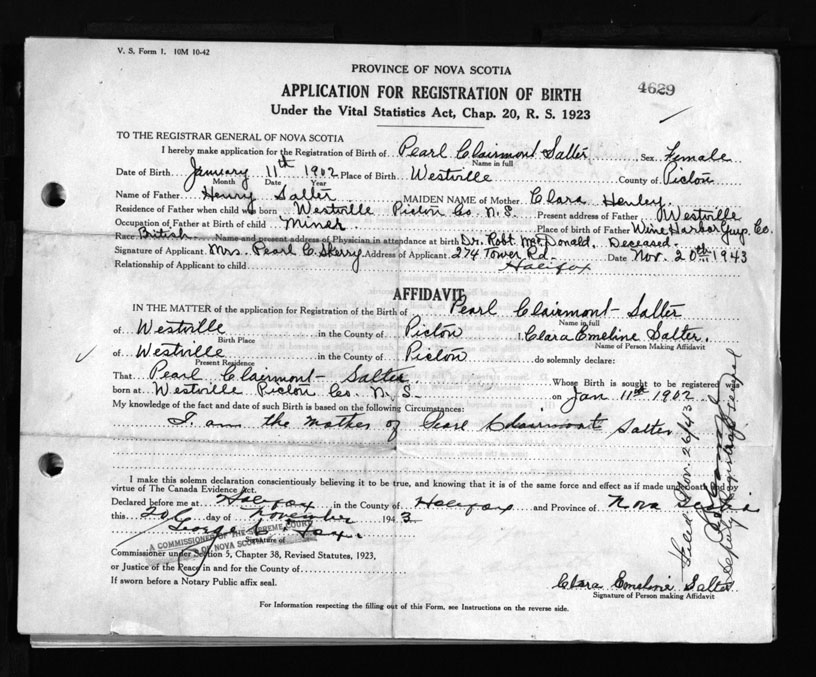 V. S. Form 1. 10M 10-42
PROVINCE OF NOVA SCOTIA
4629
APPLICATION FOR REGISTRATION OF BIRTH
Under the Vital Statistics Act, Chap. 20, R. S. 1923
TO THE REGISTRAR GENERAL OF NOVA SCOTIA
I hereby make application for the Registration of Birth of Pearl Clairmont Salter Sex Female
Name in full
Date of Birth January 11th 1902 Place of Birth Westville County of Pictou
Month Date Year
Name of Father Henry Salter MAIDEN NAME of Mother Clara Henley
Residence of Father when child was born Westville Pictou Co. N. S. Present address of Father Westville
Occupation of Father at Birth of child Miner Place of birth of Father Wine Harbor Guy. Co.
Race British Name and present address of Physician in attendance at birth Dr. Robt. McDonald. Deceased.
Signature of Applicant Mrs. Pearl C. Sherry Address of Applicant 274 Tower Rd. Date Nov. 20th 1943
Relationship of Applicant to child Halifax
AFFIDAVIT
IN THE MATTER of the application for Registration of the Birth of Pearl Clairmont Salter
Name in full
of Westville in the County of Pictou Clara Emeline Salter.
Birth Place Name of Person Making Affidavit
of Westville in the County of Pictou do solemnly declare:
Present Residence
That Pearl Clairmont Salter Whose Birth is sought to be registered was
born at Westville Pictou Co. N. S. on Jan 11th 1902
My knowledge of the fact and date of such Birth is based on the following Circumstances:
I am the mother of Pearl Clairmont Salter
I make this solemn declaration conscientiously believing it to be true, and knowing that it is of the same force and effect as if made under oath and by
virtue of The Canada Evidence Act.
Declared before me at Halifax in the County of Halifax and Province of Nova Scotia
this 20th day of November 1943
George
A COMMISSIONER OF THE SUPREME COURT
OF NOVA SCOTIA
Signature of
Commissioner under Section 5, Chapter 38, Revised Statutes, 1923,
or Justice of the Peace in and for the County of
If sworn before a Notary Public affix seal.
Clara Emeline Salter
Signature of Person making Affidavit
For Information respecting the filling out of this Form, see Instructions on the reverse side.
Filed Nov. 26/43
Deputy Registrar General